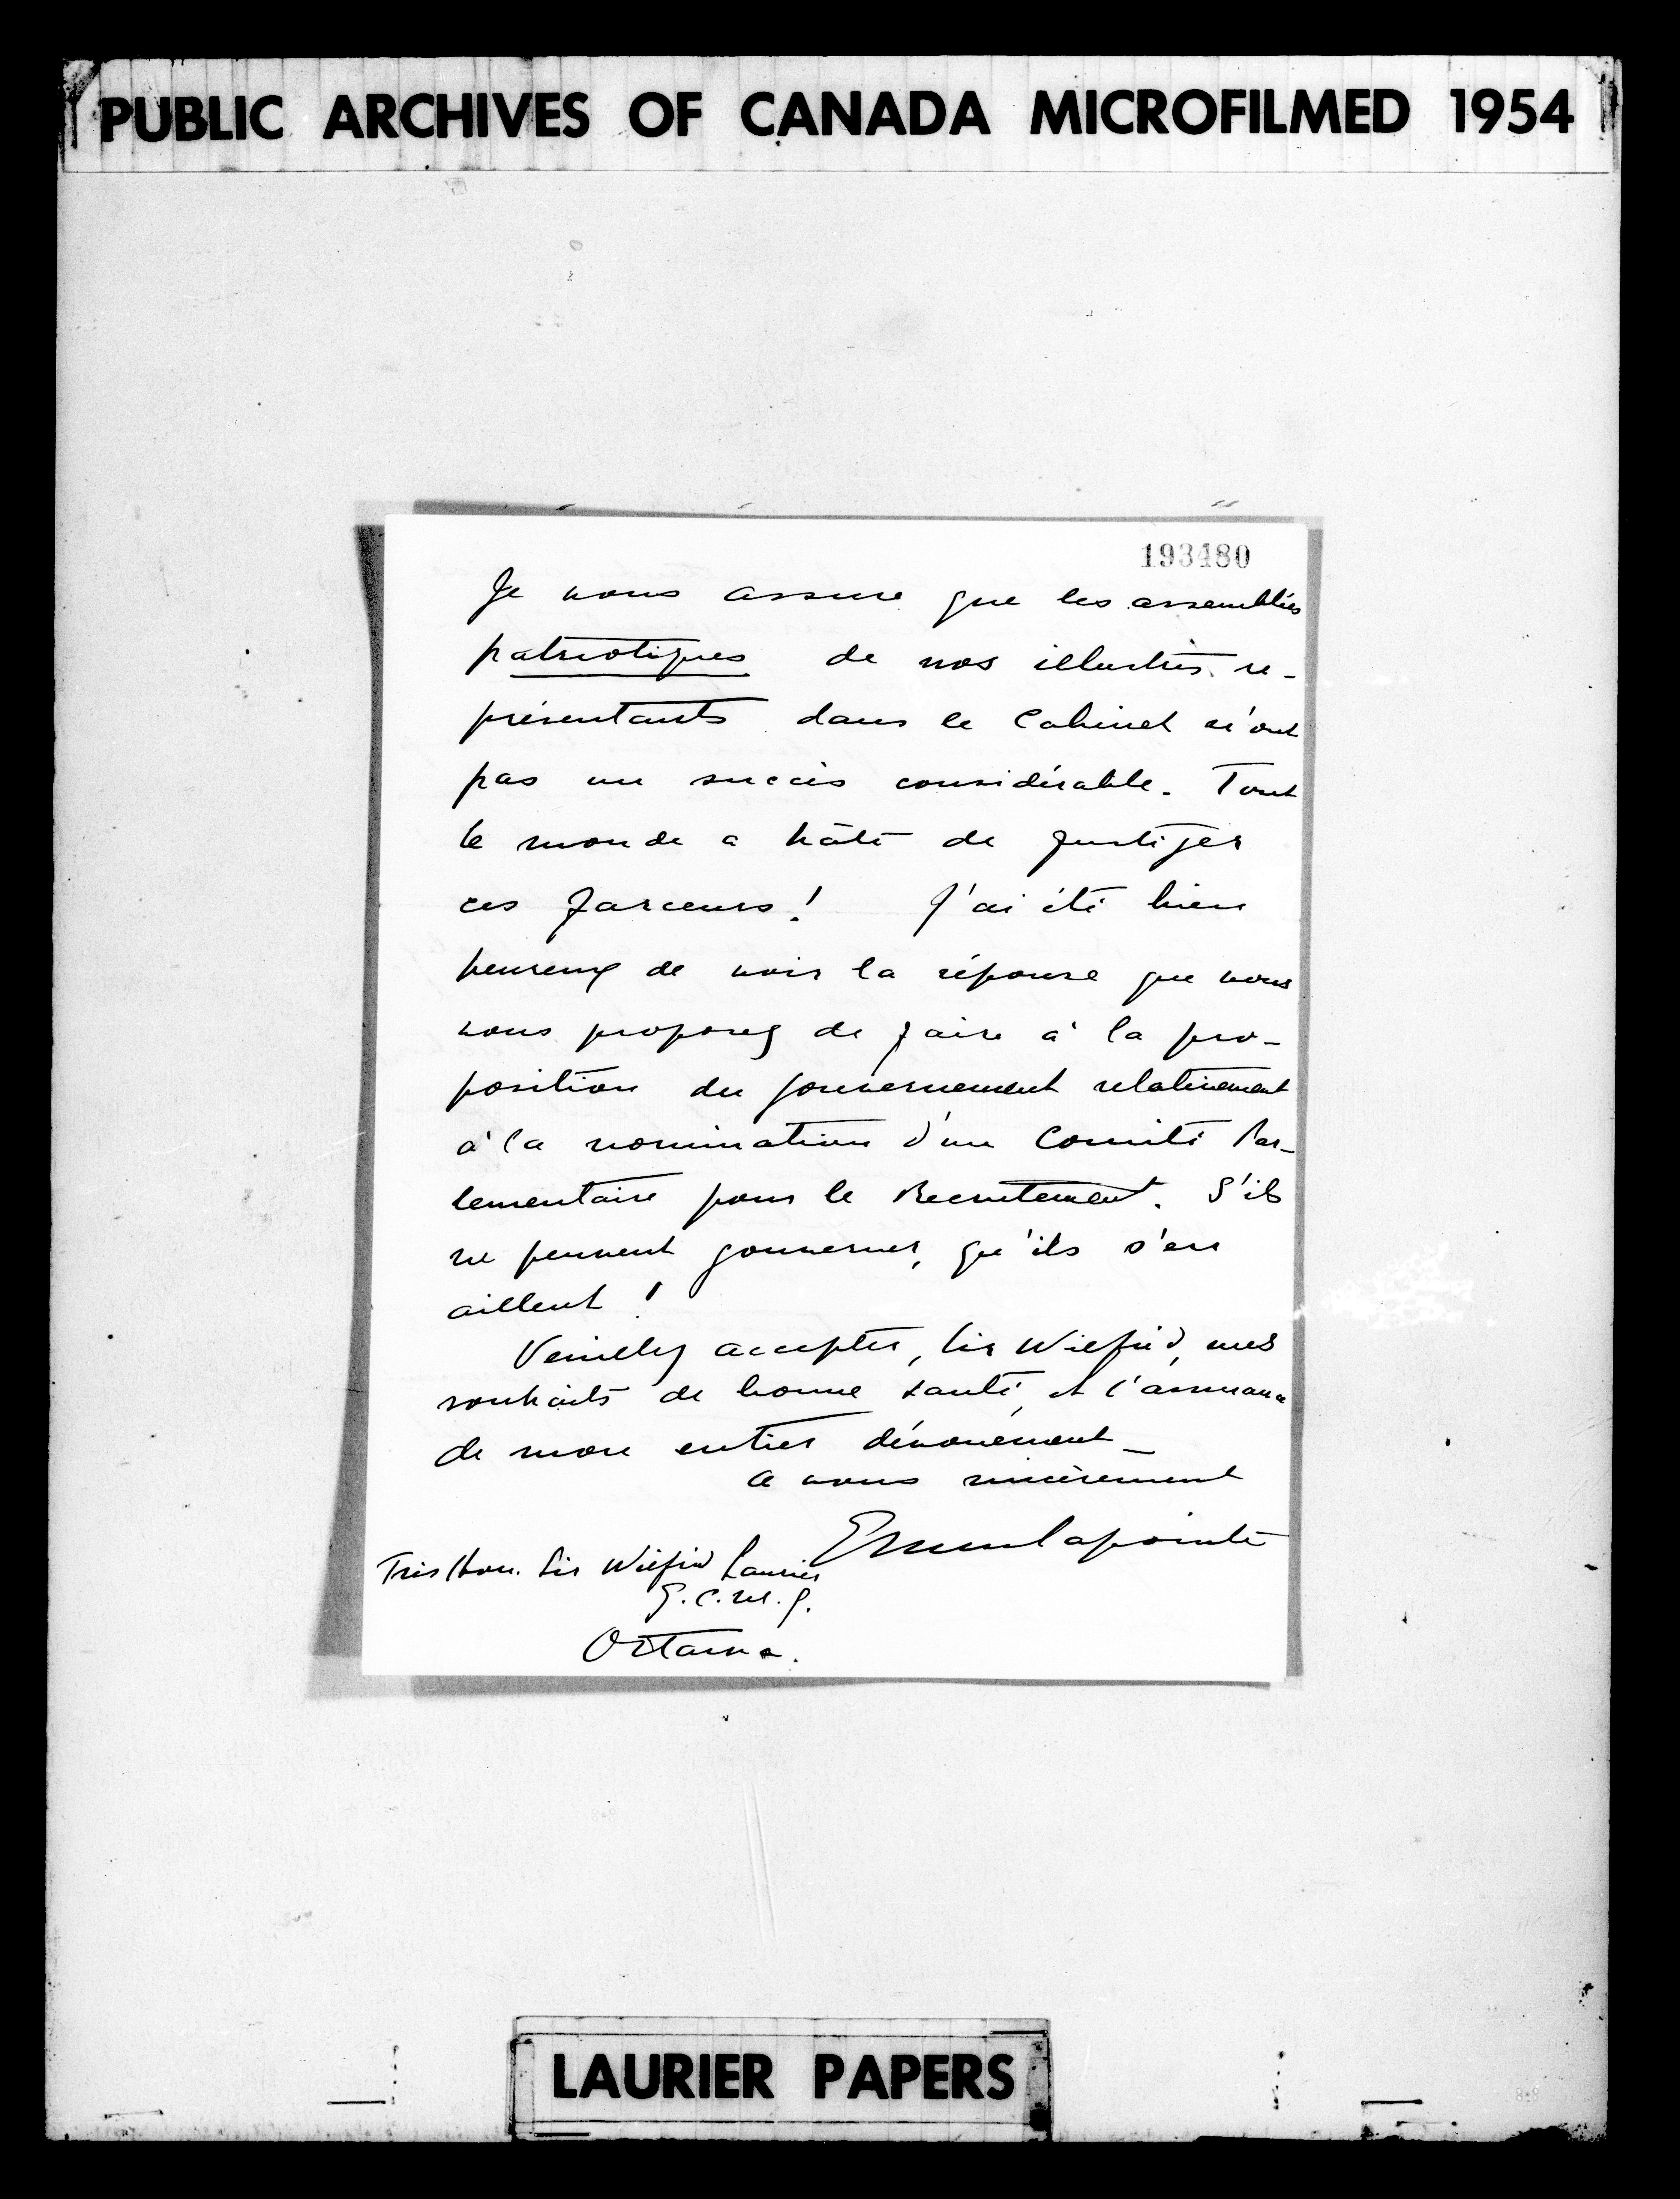 PUBLIC ARCHIVES OF CANADA MICROFILMED 1954
193480
Je vous assure que les assemblées
patriotiques de nos illustres re-
présentants dans le Cabinet n'ont
pas un succès considérable. Tout
le monde a hâte de fustiger
ces farceurs! J'ai été bien
heureux de voir la réponse que vous
vous proposez de faire à la pro-
position du gouvernement relativement
à la nomination d'un Comité Par-
lementaire pour le Recrutement. S'ils
ne peuvent gouverner, qu'ils s'en
aillent !
Veuillez accepter, Sir Wilfrid, mes
souhaits de bonne santé, et l'assurance
de mon entier dévouement_
A vous sincèrement
Ernest Lapointe
Très Hon. Sir Wilfrid Laurier
G.C.M.G.
Ottawa.
LAURIER PAPERS